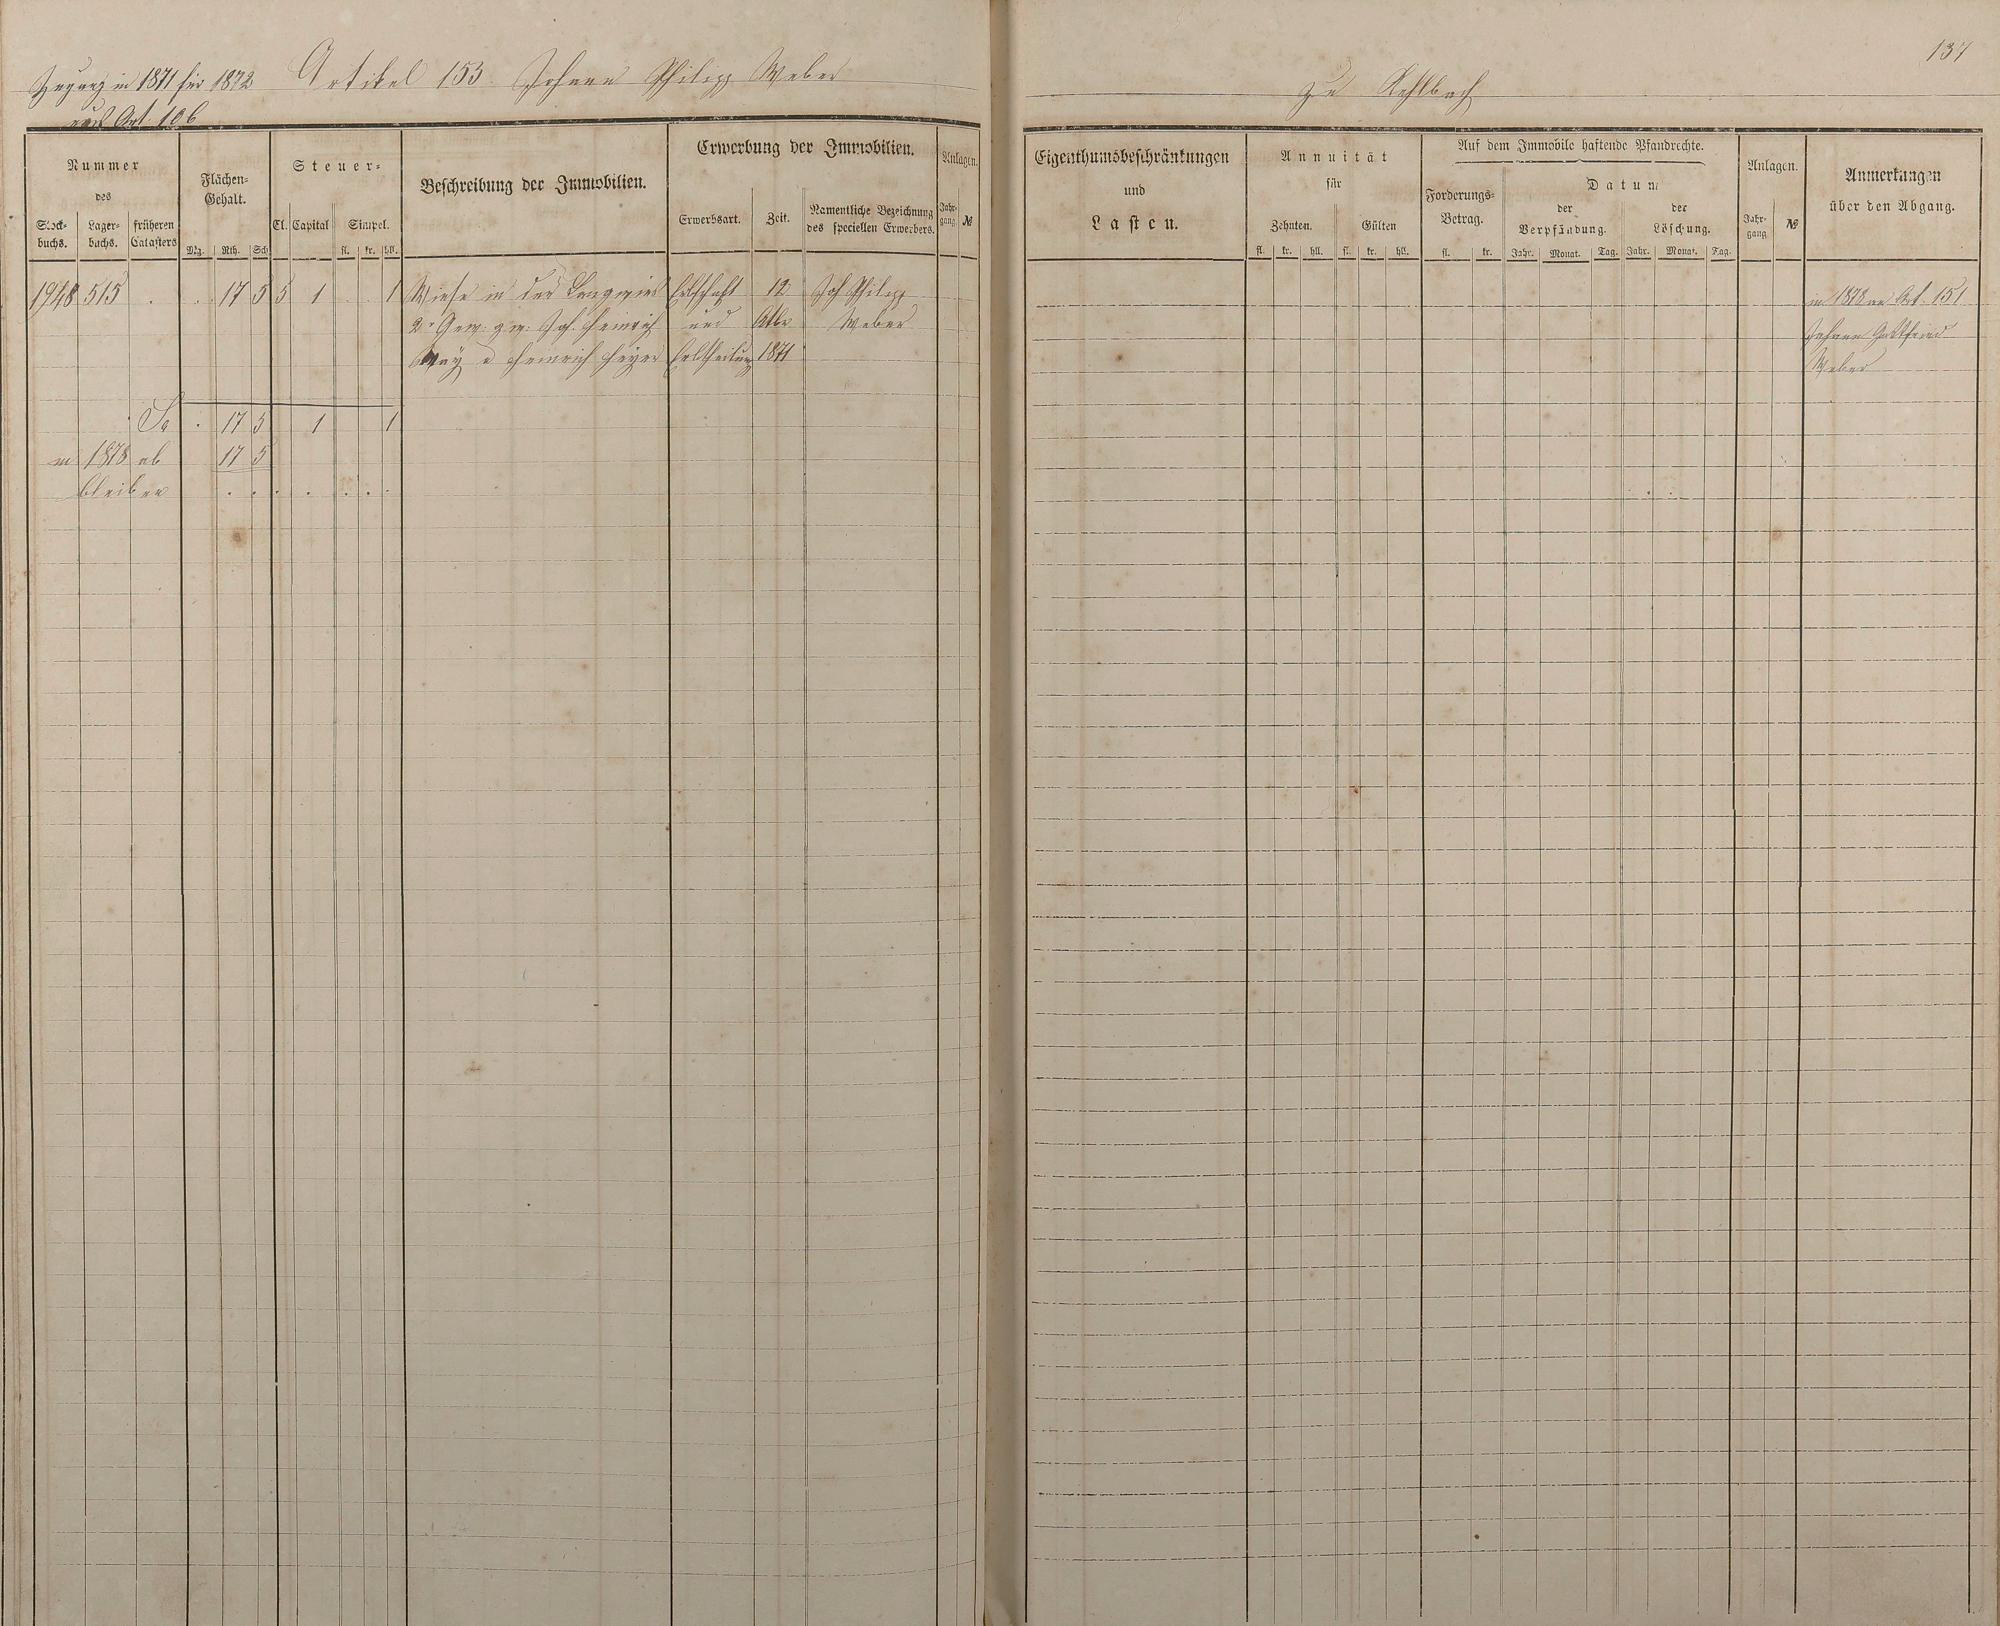 137
Zugang in 1871 für 1872 Artikel 153. Johann Philipp Weber zu Kehlbach
aus Art. 106
Nummer
des
Stock-
buchs.
Lager-
buchs.
früheren
Catasters
Flächen-
Gehalt.
Mg. Rth. Sch.
Steuer-
Cl. Capital Simpel.
fl. kr. hll.
Beschreibung der Immobilien.
Erwerbung der Immobilien.
Erwerbsart. Zeit.
Namentliche Bezeichnung
des speciellen Erwerbers.
Anlagen.
Jahr-
gang №
Eigenthumsbeschränkungen
und
Lasten.
Annuität
für
Zehnten. Gülten
fl. kr. hll. fl. kr. hll.
Auf dem Immobile haftende Pfandrechte.
Forderungs-
Betrag.
fl. kr.
Datum
der
Verpfändung.
der
Löschung.
Jahr. Monat. Tag. Jahr. Monat. Tag.
Anlagen.
Jahr-
gang №
Anmerkungen
über den Abgang.
1948 515 . . 17 5 5 1 . . 1 Wiese in der Langwies Erbschaft 12 Joh Philipp in 1878 an Art. 151
2r Gew: zw: Joh. Heinrich und Weber Johann Gottfried
Heinrich Erbtheilung 1871 Weber
Sa . 17 5 1 1
in 1878 ab 17 5
bleiben . . . . . . .